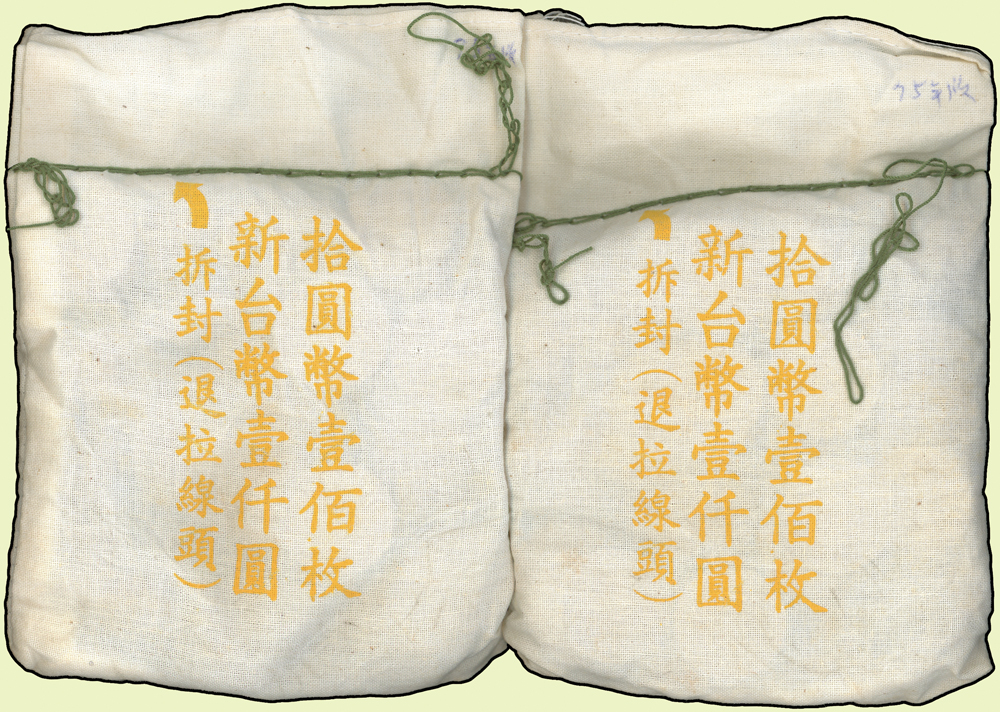 拾圓幣壹佰枚
新台幣壹仟圓
拆封(退拉線頭)
75年版
拾圓幣壹佰枚
新台幣壹仟圓
拆封(退拉線頭)